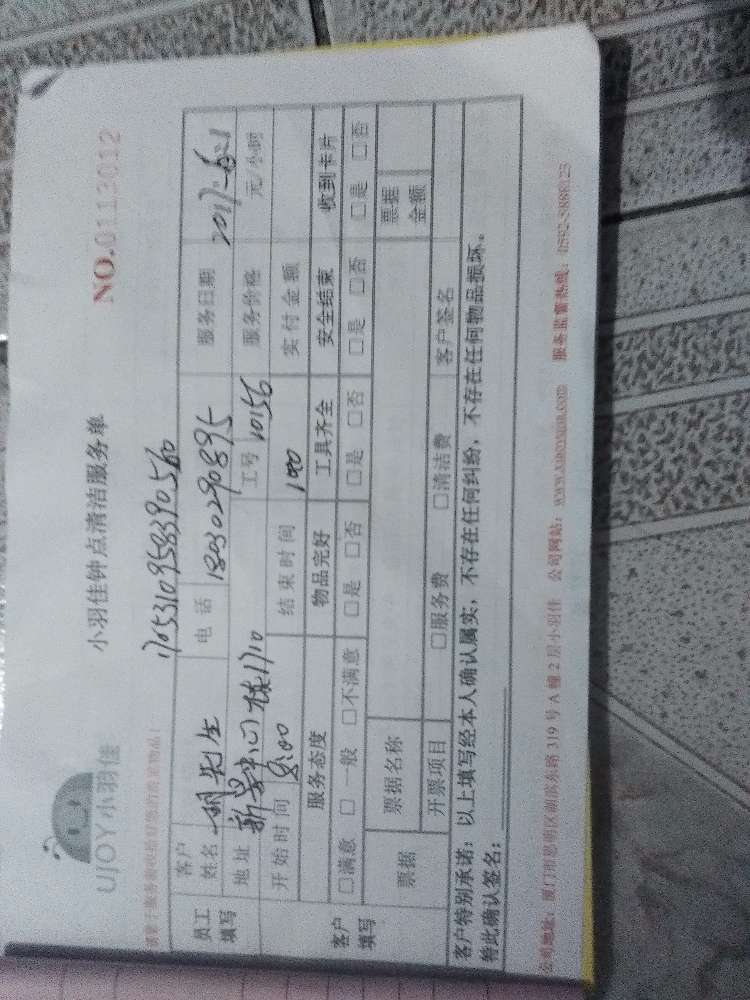 UJOY小羽佳
小羽佳钟点清洁服务单
NO.0113012
17053109583905560
员工填写
客户姓名 胡先生 电话 18030290895 服务日期 2017
地址 新景中心 栋1710 工号 10156 服务价格 元/小时
开始时间 8:00 结束时间 实付金额
客户填写
服务态度 物品完好 工具齐全 安全结束 收到卡片
□满意 □一般 □不满意 □是 □否 □是 □否 □是 □否 □是 □否
票据 票据名称 票据金额
开票项目 □服务费 □清洁费 客户签名
客户特别承诺：以上填写经本人确认属实，不存在任何纠纷，不存在任何物品损坏。
特此确认签名：
公司地址：厦门市思明区湖滨东路319号A幢2层小羽佳 公司网站： 服务监督热线：0592-5888123